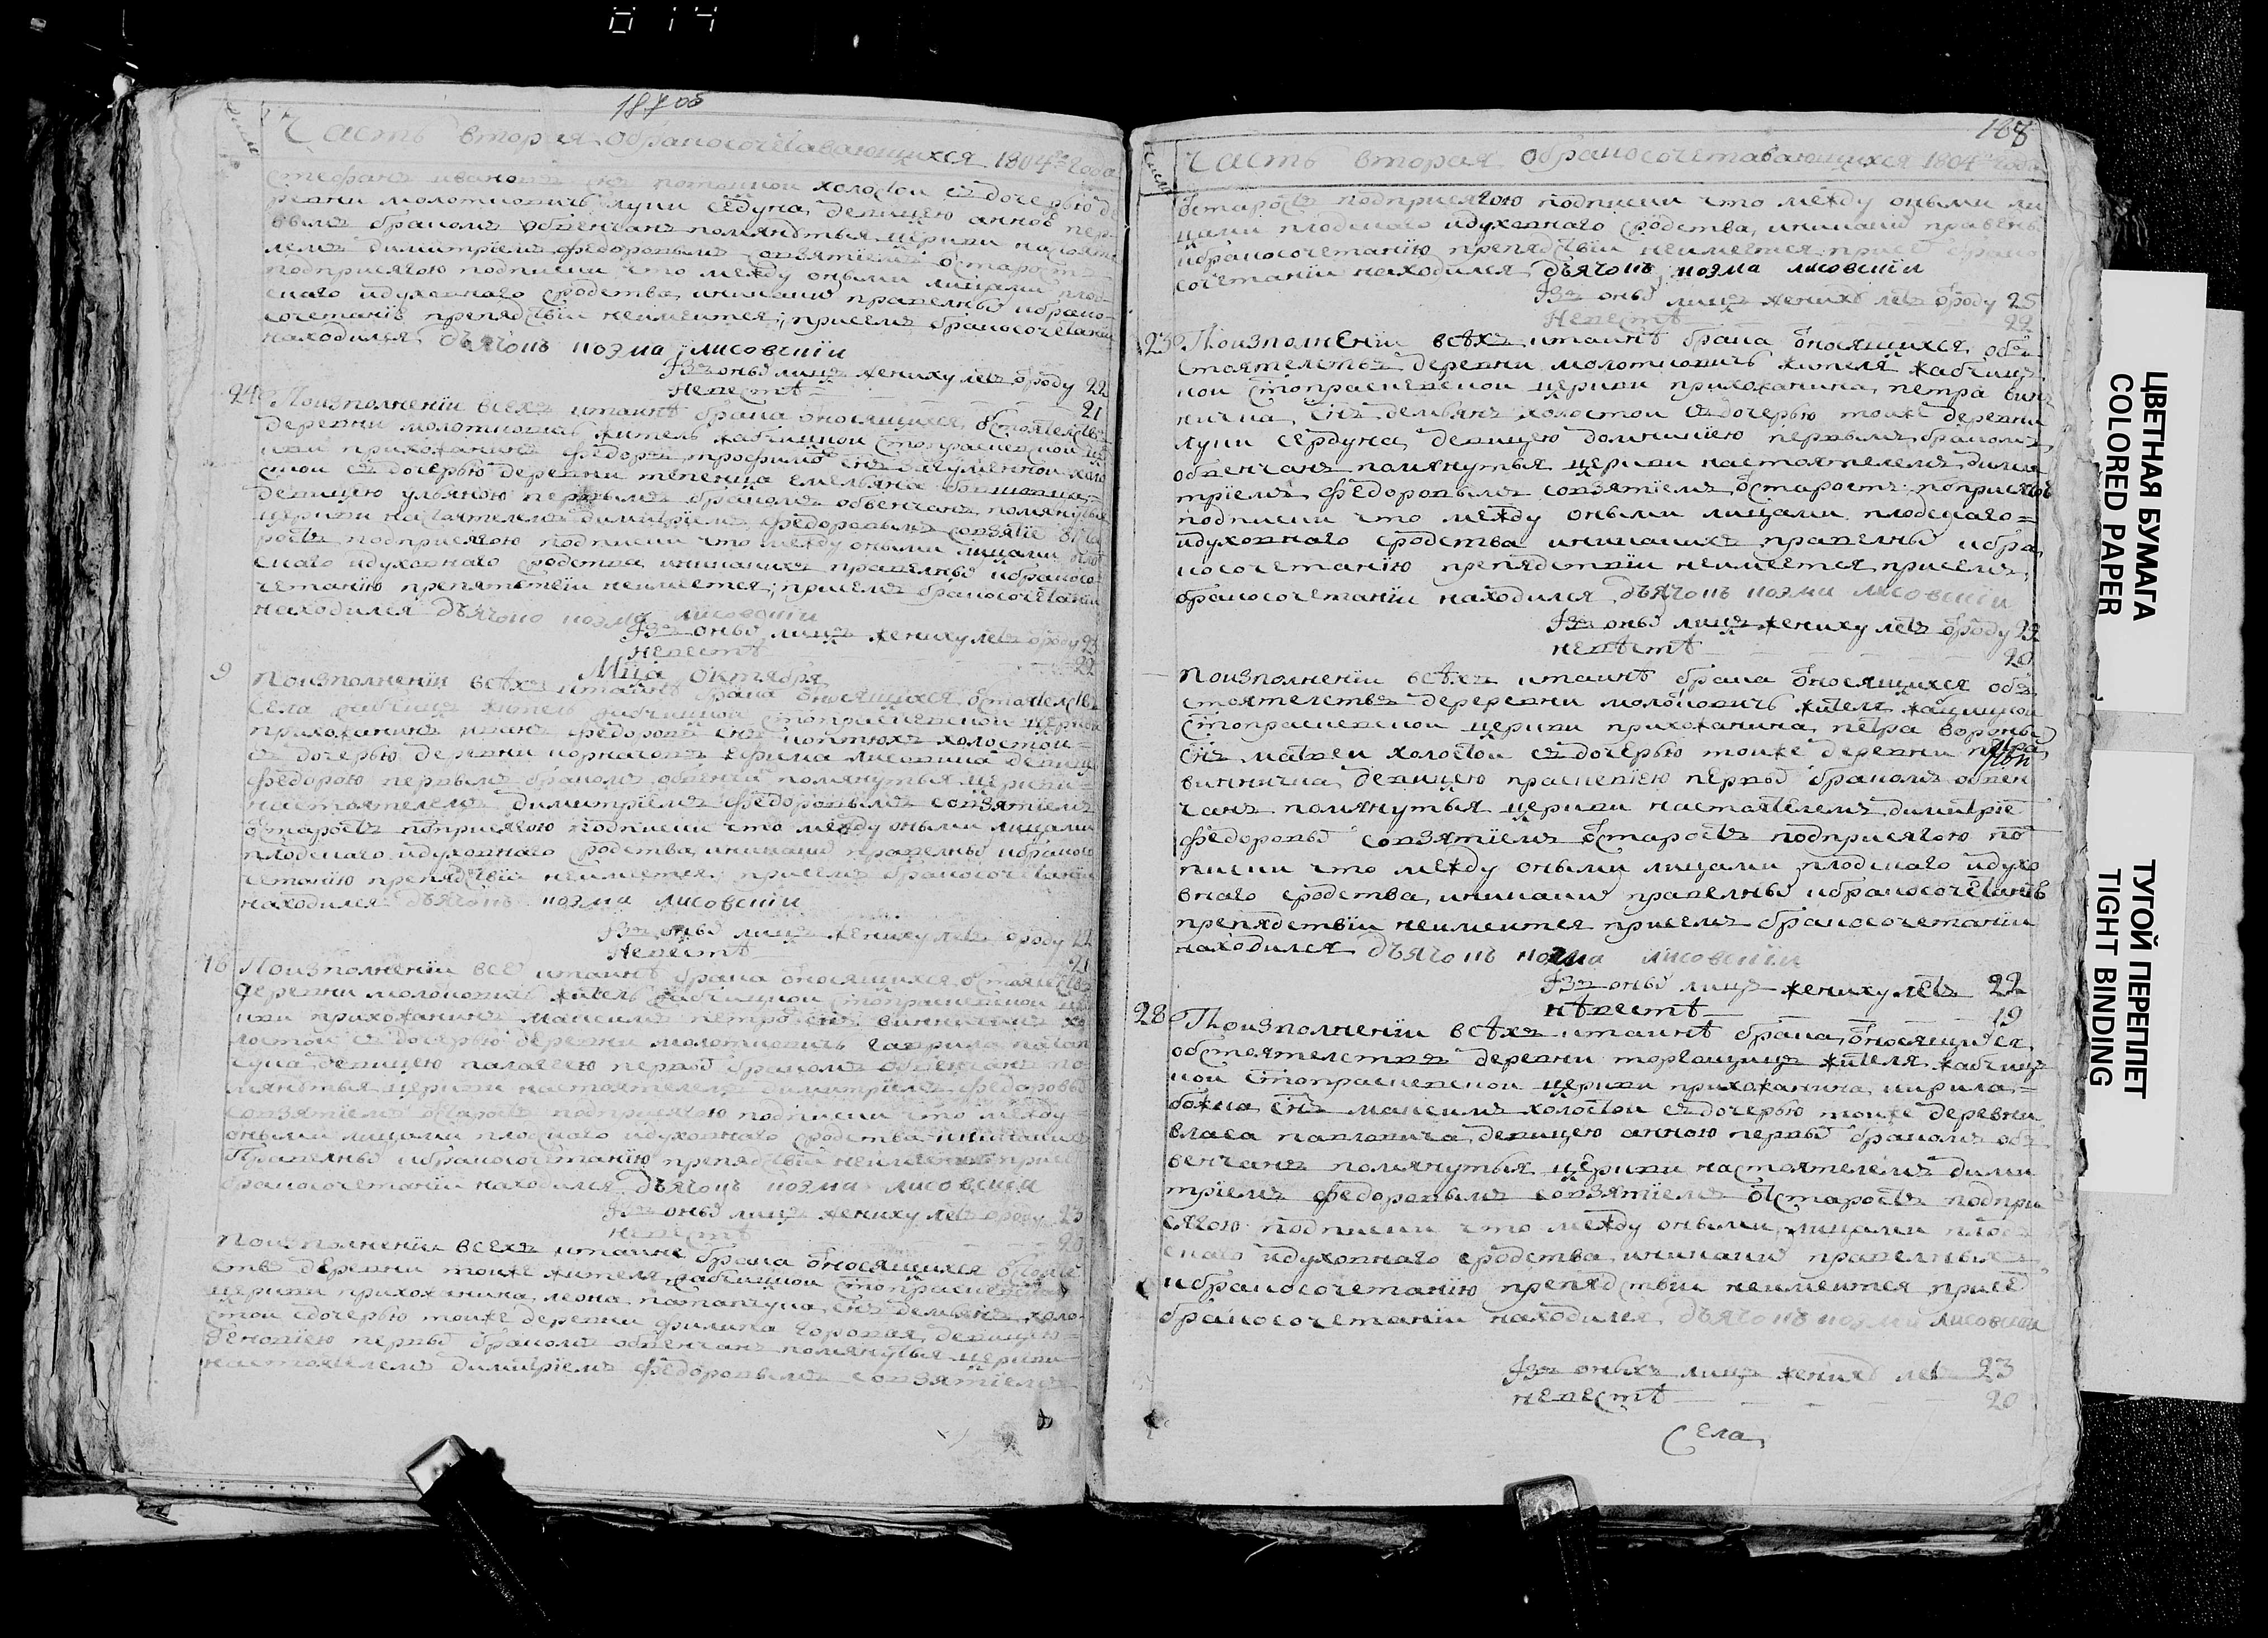 187 об
Часть вторая Обракосочетавающихся 1804го года
Стефанъ Ивановъ снъ холостой съ дочерью де
ревни Молотковичъ Луки Седуна девицею Анною пер
вымъ бракомъ обвенчанъ помянутыя церкви настояте
лемъ Димитриемъ Федоровымъ совзятиемъ от старостъ
подприсягою подписки что между оными лицами плод
скаго идуховнаго сродства иникакихъ правелныхъ ибрако
сочетанию препядствий неимеется; присемъ бракосочетании
находился дьячокъ Козма Лисовский
Изъ оныхъ лицъ жениху летъ отроду 22
Невесте 21
24 Поизполнении всехъ ктаинѣ брака относящихся обстоятелствъ
деревни житель Жабчицкой Стопраскевской цер
кви прихожанинъ Федоръ Трофимовъ снъ холо
стой съ дочерью деревни Емельяна
девицею Ульяною первымъ бракомъ обвенчанъ помянутыя
церкви настоятелемъ Димитриемъ Федоровымъ совзятие отста
ростъ подприсягою подписки что между оными лицами плот
скаго идуховнаго сродства иникакихъ правелныхъ ибракосо
четанию препятствий неимеется; присемъ бракосочетании
находился дьячокъ Козма Лисовский
Изъ оныхъ лицъ жениху летъ отроду 23
Невесте 22
Мца Октября
9 Поизполнении всѣхъ ктаинѣ брака относящихся обстоятелствъ
Села Жабчицъ житель Жабчицкой Стопраскевской церкви
прихожанинъ Иванъ Федоровъ снъ холостой
съ дочерью деревни Ефима девицею
Федорою первымъ бракомъ обвенчанъ помянутыя церкви
настоятелемъ Димитриемъ Федоровымъ совзятиемъ
отстаростъ подприсягою подписки что между оными лицами
плодскаго идуховнаго сродства иникакихъ правелныхъ ибракосо
четанию препядствий неимеется; присемъ бракосочетании
находился дьячокъ Козма Лисовский
Изъ оныхъ лицъ жениху летъ отроду 22
Невесте 21
16 Поизполнении всехъ ктаинѣ брака относящихся обстоятелствъ
деревни житель Жабчицкой Стопраскевской цер
кви прихожанинъ Максимъ Петровъ снъ хо
лостой съ дочерью деревни Молотковичъ Гаврила
девицею Палагею первымъ бракомъ обвенчанъ по
мянутыя церкви настоятелемъ Димитриемъ Федоровымъ
совзятиемъ отстаростъ подприсягою подписки что между
оными лицами плоскаго идуховнаго сродства иникакихъ
правелныхъ ибракосочетанию препядствий неимеется присемъ
бракосочетании находился дьячокъ Козма Лисовский
Изъ оныхъ лицъ жениху летъ отроду 23
невесте 20
Поизполнении всехъ ктаине брака относящихся обстояте
ствъ деревни тойже жителя Жабчицкой Стопраскевской
церкви прихожанина Леона снъ Демьянъ холо
стой сдочерью тойже деревни Филипа девицею
первымъ бракомъ обвенчанъ помянутыя церкви
настоятелемъ Димитриемъ Федоровымъ совзятиемъ
188
Число
Часть вторая Обракосочетавающихся 1804го года
отстаростъ подприсягою подписки что между оными ли
цами плодскаго идуховнаго сродства, иникакихъ правелны
ибракосочетанию препядствий неимеется, присемъ брако
сочетании находился дьячокъ Козма Лисовский
Изъ оныхъ лицъ женихе летъ отроду 25
Невестѣ 22
23 Поизполнении всѣхъ ктаинѣ брака относящихся объ
стоятелствъ деревни Молотковичъ жителя Жабчиц
кой Стопраскевской церкви прихожанина Петра Вин
ничка снъ Демьянъ холостой съ дочерью тоиже деревни
Луки Сердуна девицею Домникиею первымъ бракомъ
обвенчанъ помянутыя церкви настоятелемъ Дими
триемъ Федоровымъ совзятиемъ отстаростъ поприсягою
подписки что между оными лицами плодскаго
идуховнаго сродства иникакихъ правелныхъ ибра
косочетанию препядствии неимеется присемъ
бракосочетании находился дьячокъ Козма Лисовский
Изъ оныхъ лицъ жениху летъ отроду 22
невѣстѣ 20
Поизполнении всѣхъ ктаинѣ брака относящихся объ
стоятелствъ дереревни жителя Жабчицкой
Стопраскевской церкви прихожанина Петра Вороны
снъ Матвей холостой съ дочерью тоиже деревни Петра
Винничка девицею Праскевиею первымъ бракомъ обвен
чанъ помянутыя церкви настоятелемъ Димитрие
Федоровымъ совзятиемъ отстаростъ подприсягою по
писки что между оными лицами плодскаго идухо
внаго сродства, иникакихъ правелныхъ ибракосочетание
препядствии неимеется присемъ бракосочетании
находился дьячокъ Козма Лисовский
Изъ оныхъ лицъ жениху летъ 22
нѣвестѣ 19
28 Поизполнении всѣхъ ктаинѣ брака относящихся
обстоятелствъ деревни жителя Жабчиц
кой Стопраскевской церкви прихожанина Кирила
снъ Максимъ холостой съ дочерью тоиже деревни
Власа Павловича девицею Анною первымъ бракомъ об
венчанъ помянутыя церкви настоятелемъ Дими
триемъ Федоровымъ совзятиемъ отстаростъ подпри
сягою подписки что между оными лицами плод
скаго идуховнаго сродства иникакихъ правелныхъ
ибракосочетанию препядствии неимеется присе
бракосочетании находился дьячокъ Козма Лисовский
Изъ оныхъ лицъ жениху летъ 23
невестѣ 20
Села
ЦВЕТНАЯ БУМАГА
COLORED PAPER
ТУГОЙ ПЕРЕПЛЕТ
TIGHT BINDING